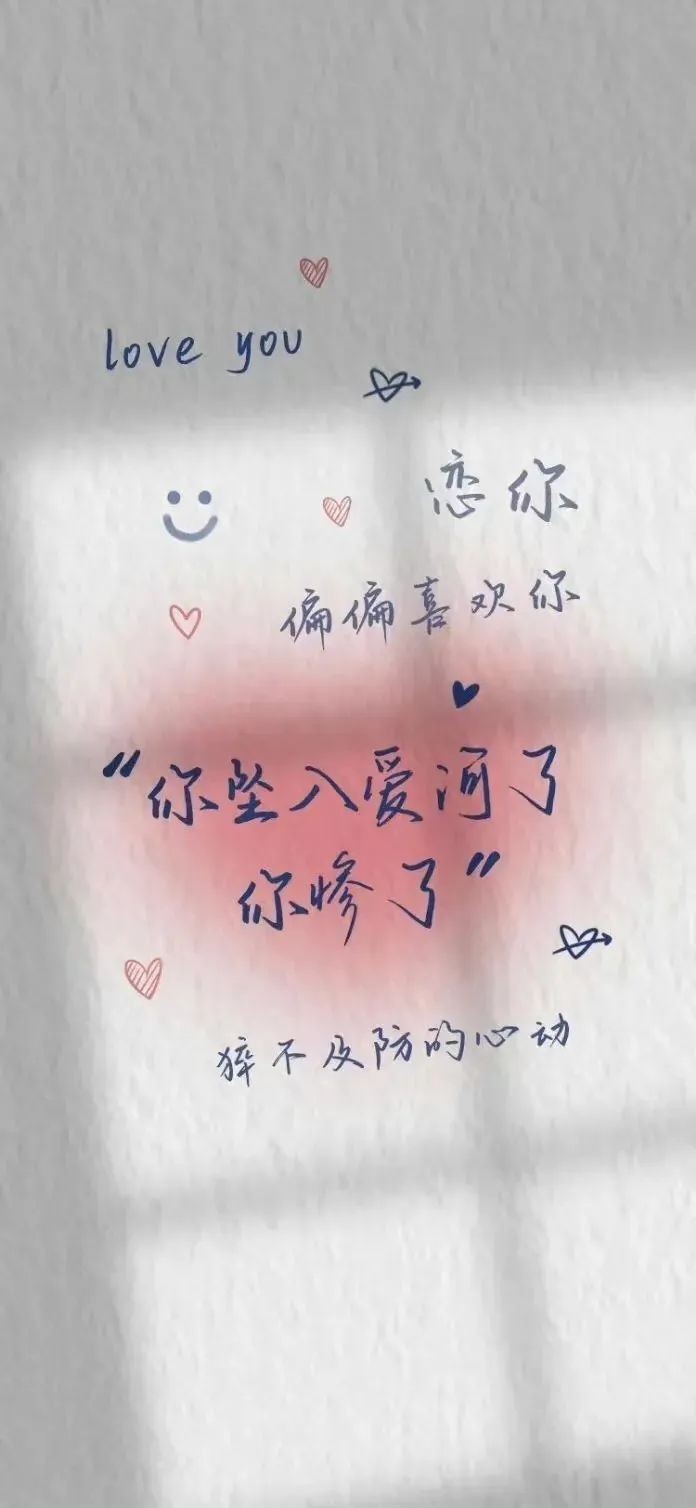 love you
恋你
偏偏喜欢你
“你坠入爱河了
你惨了”
猝不及防的心动